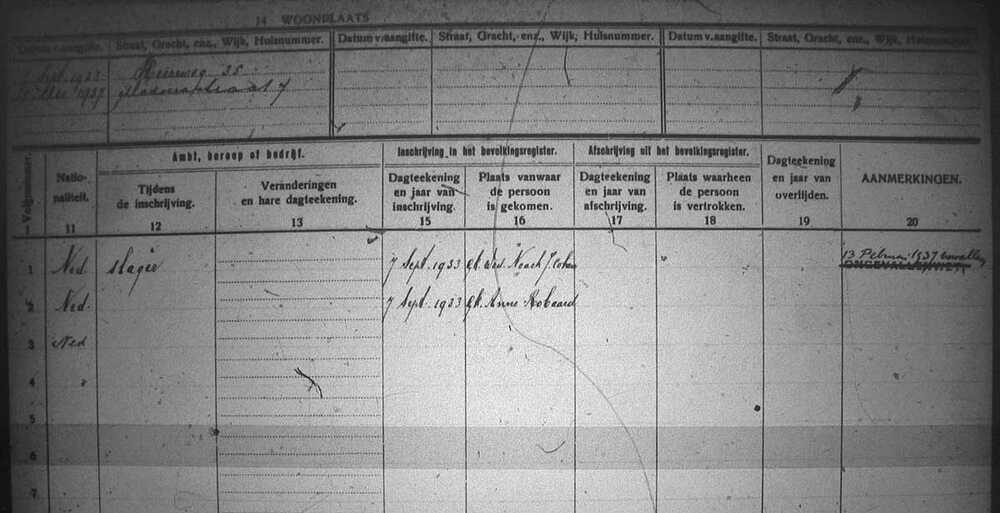 14 WOONPLAATS
Datum v. aangifte. Straat, Gracht, enz., Wijk, Huisnummer. Datum v. aangifte. Straat, Gracht, enz., Wijk, Huisnummer. Datum v. aangifte. Straat, Gracht, enz., Wijk, Huisnummer.
Sept. 1933 35
1937 7
Volgnummer. Natio-naliteit. Ambt, beroep of bedrijf. Inschrijving in het bevolkingsregister. Afschrijving uit het bevolkingsregister. Dagteekening en jaar van overlijden. AANMERKINGEN.
Tijdens de inschrijving. Veranderingen en hare dagteekening. Dagteekening en jaar van inschrijving. Plaats vanwaar de persoon is gekomen. Dagteekening en jaar van afschrijving. Plaats waarheen de persoon is vertrokken.
1 11 12 13 15 16 17 18 19 20
1 Ned. slager 7 Sept. 1933 Gk. Wed. Noach J. Cohen 13 1937
ONGEVALLENWET
2 Ned. 7 Sept. 1933 Gk. Anne
3 Ned
4
5
6
7